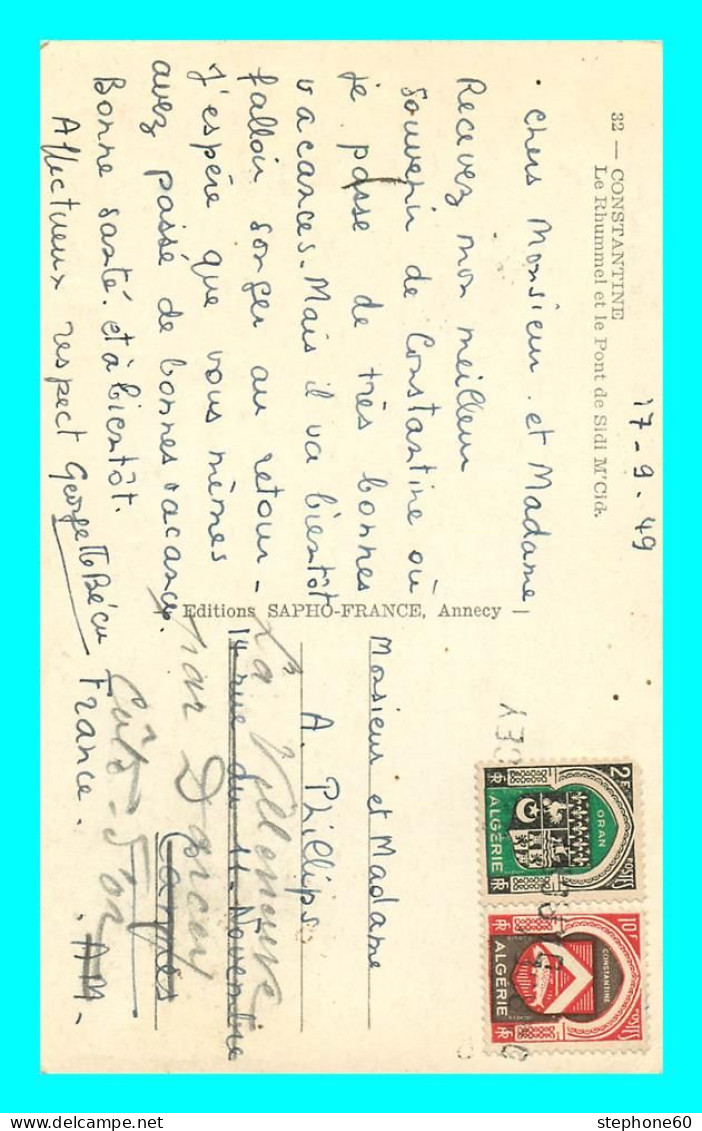 32 — CONSTANTINE
Le Rhummel et le Pont de Sidi M'Cid.
17-9-49
Chers Monsieur et Madame
Recevez mon meilleur
souvenir de Constantine où
je passe de très bonnes
vacances. Mais il va bientôt
falloir songer au retour -
J'espère que vous mêmes
avez passé de bonnes vacances.
Bonne santé. et à bientôt.
Affectueux respect Georgette Bécu
— Editions SAPHO-FRANCE, Annecy —
Monsieur et Madame
A. Phillips
14 rue du 11 Novembre
La Villeneuve
par Darcey
Cannes
Côte-d'Or
A.M.
France.
2F
ORAN
POSTES
ALGÉRIE
RF
RF
10F
CONSTANTINE
POSTES
ALGÉRIE
RF
RF
stephone60